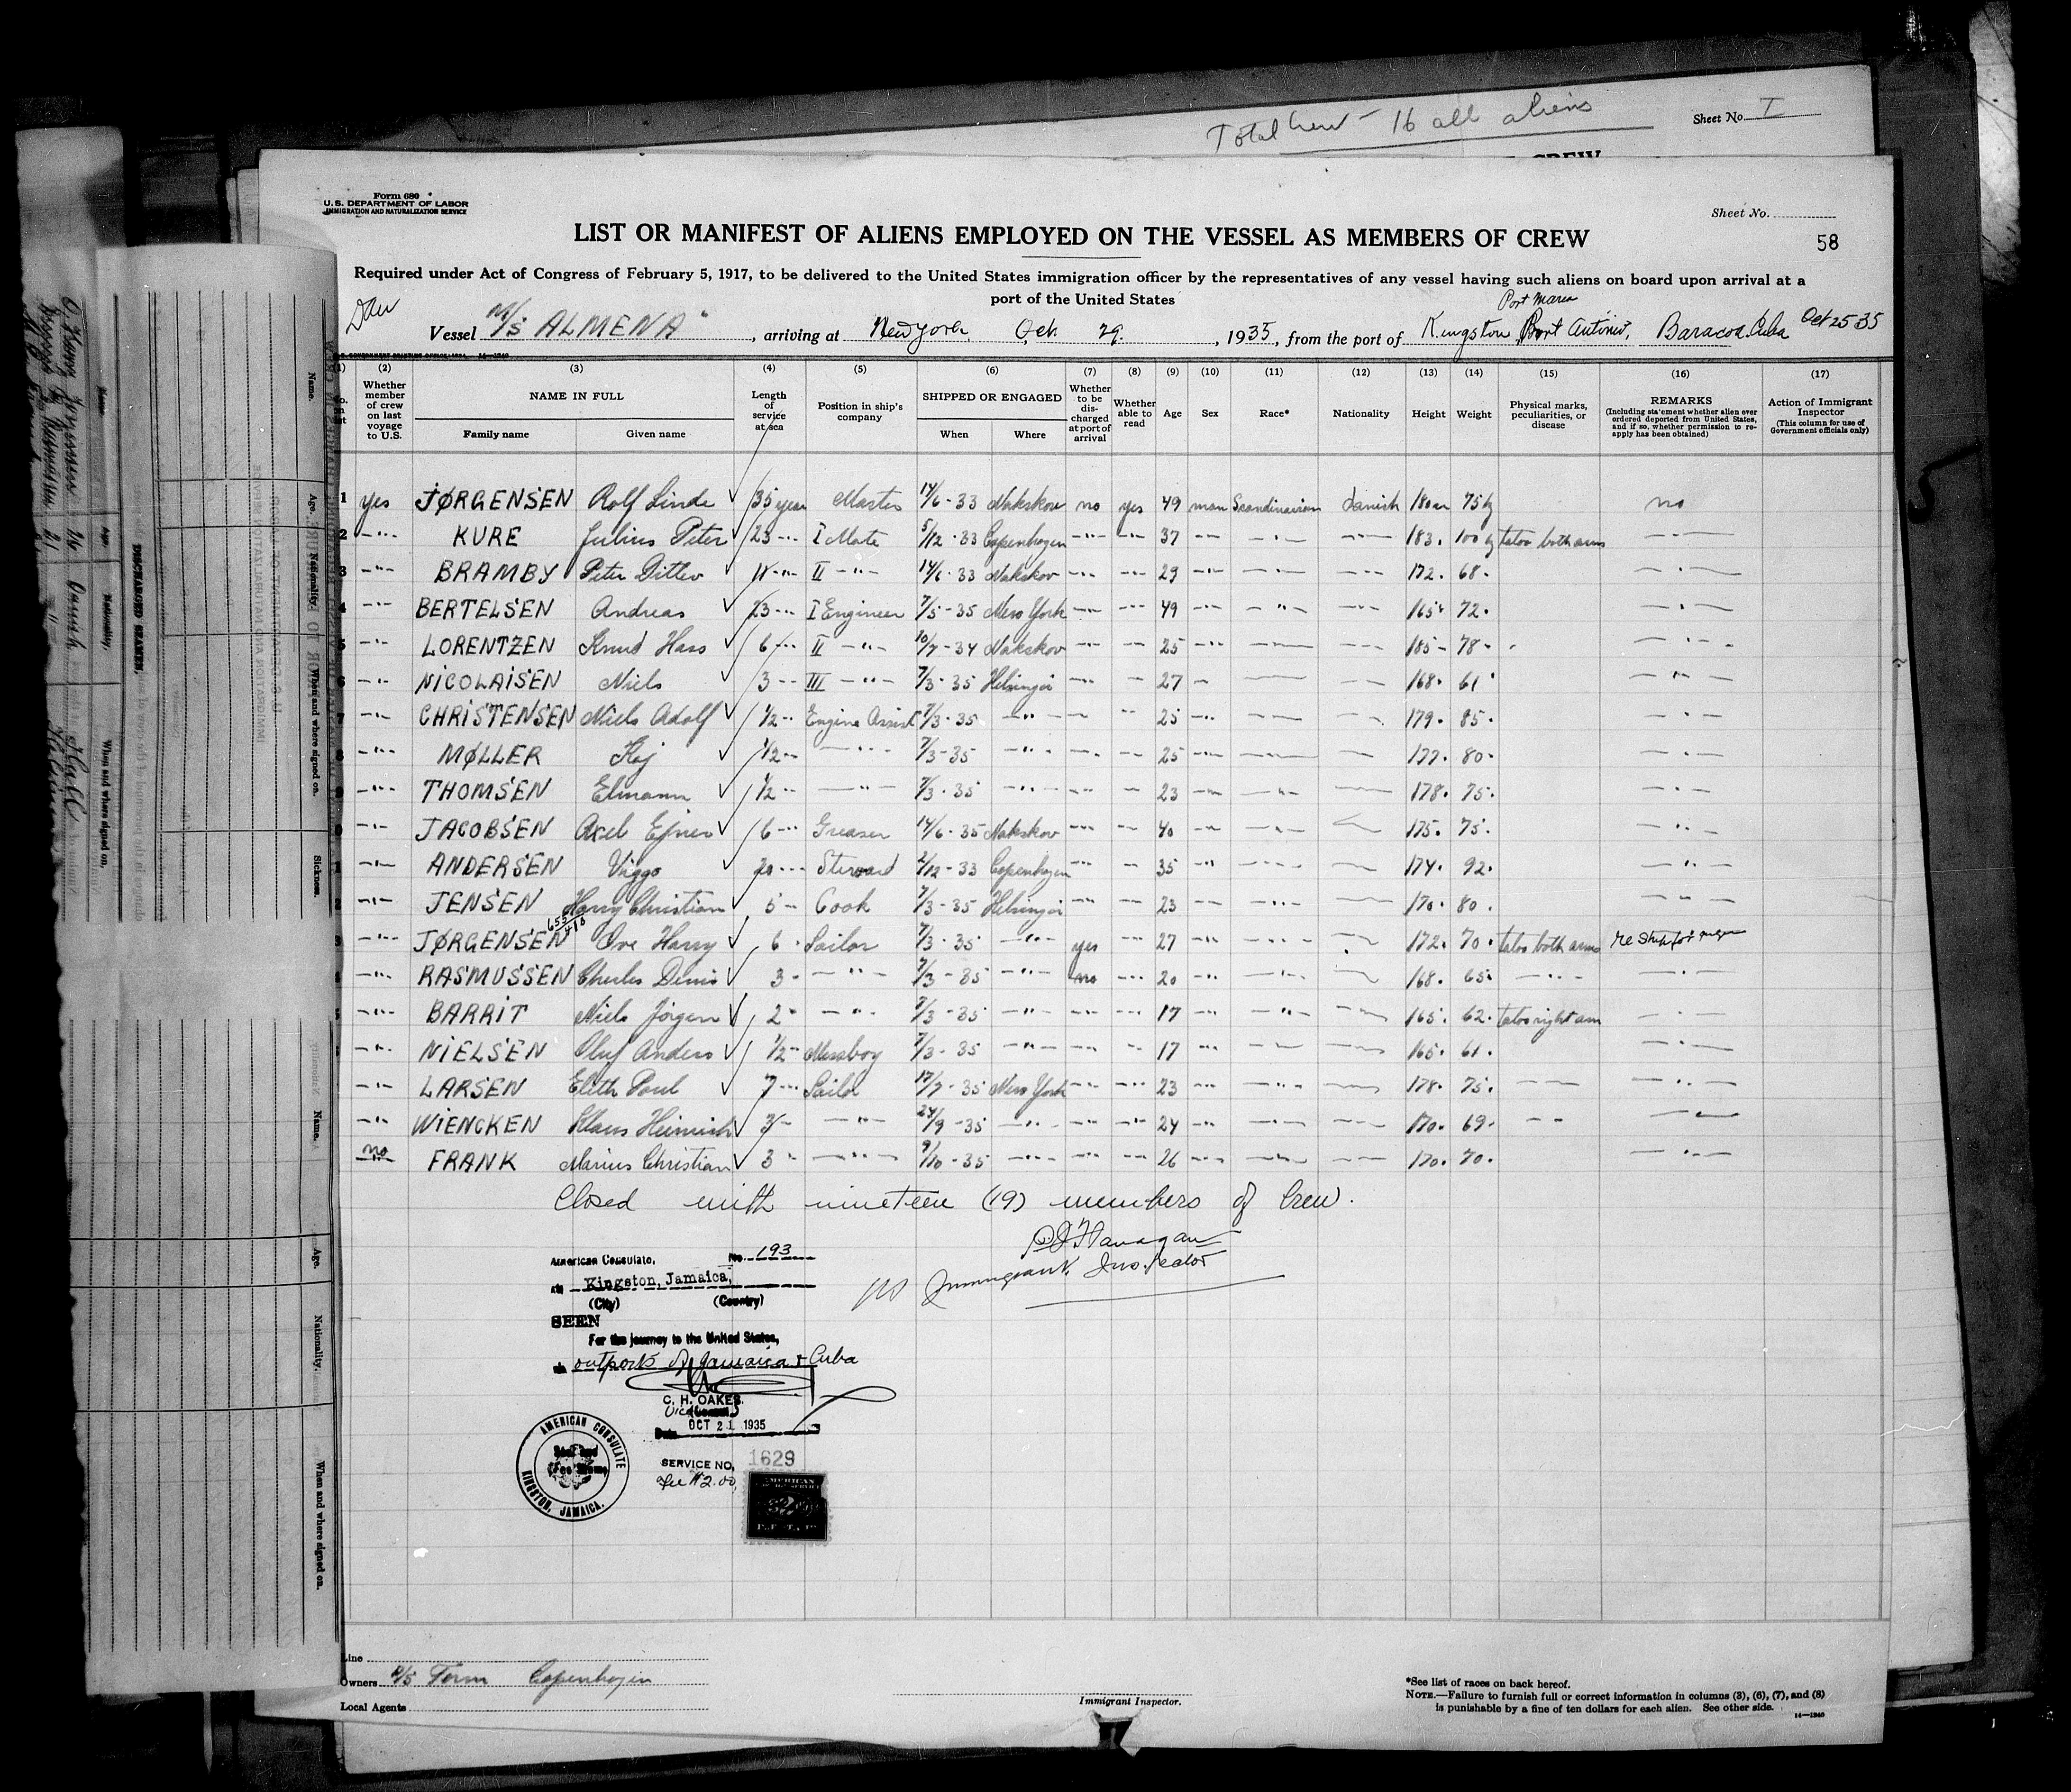 Total Crew - 16 all aliens
Sheet No. I
Form 680
U.S. DEPARTMENT OF LABOR
IMMIGRATION AND NATURALIZATION SERVICE
Sheet No.
LIST OR MANIFEST OF ALIENS EMPLOYED ON THE VESSEL AS MEMBERS OF CREW
58
Required under Act of Congress of February 5, 1917, to be delivered to the United States immigration officer by the representatives of any vessel having such aliens on board upon arrival at a
port of the United States
Dan
Port Maria
Vessel M/S ALMENA, arriving at New York Oct. 29., 1935, from the port of Kingston, Port Antonio, Baracoa. Cuba Oct 25 35
(1) (2) (3) (4) (5) (6) (7) (8) (9) (10) (11) (12) (13) (14) (15) (16) (17)
Whether member of crew on last voyage to U.S.
NAME IN FULL
Family name
Given name
Length of service at sea
Position in ship's company
SHIPPED OR ENGAGED
When
Where
Whether to be discharged at port of arrival
Whether able to read
Age
Sex
Race*
Nationality
Height
Weight
Physical marks, peculiarities, or disease
REMARKS
(Including statement whether alien ever ordered deported from United States, and if so, whether permission to reapply has been obtained)
Action of Immigrant Inspector
(This column for use of Government officials only)
1 yes JØRGENSEN Rolf Linde 35 year Master 14/6-33 Nakskov no yes 49 man Scandinavian danish 180 cm 75 kg no
2 -"- KURE Julius Peter 23 -"- I Mate 5/12-33 Copenhagen -"- -"- 37 -"- -"- -"- 183. 100 kg tatoo both arms -"-
3 -"- BRAMBY Peter Ditlev 11 -"- II -"- 14/6-33 Nakskov -"- -"- 29 -"- -"- -"- 172. 68. -"-
4 -"- BERTELSEN Andreas 23 -"- I Engineer 7/5-35 New York -"- -"- 49 -"- -"- -"- 165. 72. -"-
5 -"- LORENTZEN Knud Hass 6 -"- II -"- 10/7-34 Nakskov -"- -"- 25 -"- -"- -"- 185- 78- -"-
6 -"- NICOLAISEN Niels 3 -"- III -"- 7/3-35 Helsingør -"- -"- 27 -"- -"- -"- 168. 61. -"-
7 -"- CHRISTENSEN Niels Adolf 1/2 -"- Engine Assist 7/3-35 -"- -"- -"- 25 -"- -"- -"- 179. 85. -"-
8 -"- MØLLER Kaj 1/2 -"- -"- 7/3-35 -"- -"- -"- 25 -"- -"- -"- 177. 80. -"-
9 -"- THOMSEN Elmann 1/2 -"- -"- 7/3-35 -"- -"- -"- 23 -"- -"- -"- 178. 75. -"-
0 -"- JACOBSEN Axel Ejner 6 -"- Greaser 14/6-35 Nakskov -"- -"- 40 -"- -"- -"- 175. 75. -"-
1 -"- ANDERSEN Viggo 20 -"- Steward 2/12-33 Copenhagen -"- -"- 35 -"- -"- -"- 174. 92. -"-
2 -"- JENSEN Harry Christian 5 - Cook 7/3-35 Helsingør -"- -"- 23 -"- -"- -"- 170. 80. -"-
3 -"- JØRGENSEN Ove Harry 6 Sailor 7/3-35 -"- yes -"- 27 -"- -"- -"- 172. 70. tatoo both arms
-"- RASMUSSEN Charles Denis 3 - -"- 7/3-35 -"- no -"- 20 -"- -"- -"- 168. 65. -"- -"-
-"- BARRIT Niels Jörgen 2 - -"- 7/3-35 -"- -"- -"- 17 -"- -"- -"- 165. 62. tatoo right arm -"-
-"- NIELSEN Oluf Anders 1/2 -"- Messboy 7/3-35 -"- -"- -"- 17 -"- -"- -"- 165. 61. -"-
-"- LARSEN Elith Poul 7 -"- Sailor 17/7-35 New York -"- -"- 23 -"- -"- -"- 178. 75. -"- -"-
-"- WIENCKEN Klaus Heinrich 3 - -"- 24/9-35 -"- -"- -"- 24 -"- -"- -"- 170. 69. -"- -"-
no FRANK Marius Christian 3 - -"- 9/10-35 -"- -"- -"- 26 -"- -"- -"- 170. 70. -"-
Closed with nineteen (19) members of Crew.
Immigrant Inspector
American Consulate, No. 193
at Kingston, Jamaica,
(City) (Country)
SEEN
For the journey to the United States,
via outports of Jamaica & Cuba
C. H. OAKES
Vice Consul
Date OCT 21 1935
AMERICAN CONSULATE
KINGSTON, JAMAICA.
SERVICE NO. 1629
Fee $2.00
Line
Owners A/S Form Copenhagen
Local Agents
Immigrant Inspector.
*See list of races on back hereof.
NOTE.—Failure to furnish full or correct information in columns (3), (6), (7), and (8)
is punishable by a fine of ten dollars for each alien. See other side.
14—1240
DISCHARGED SEAMEN
Name.
Age.
Nationality.
When and where signed on.
Sickness.
Name.
Age.
Nationality.
When and where signed on.